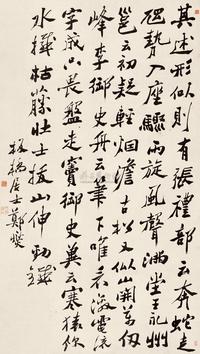 其述形似則有張禮部云奔蛇走
虺勢入座驟雨旋風聲滿堂王永州
邕云初疑輕烟澹古松又似山開萬仞
峰李御史舟云筆下唯看激電流
字成畏盤走竇御史冀云寒猿飲
水撼枯藤壯士拔山伸勁鐵
板橋居士鄭燮